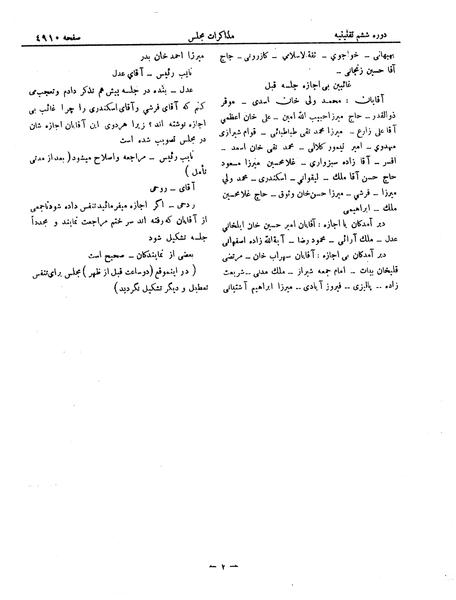 دوره ششم تقنینیه
مذاکرات مجلس
صفحه ۴۹۱۰
بهبهانی ـ خواجوی ـ ثقة الاسلامی ـ کازرونی ـ حاج
آقا حسین زنجانی ـ
غائبین بی اجازه جلسه قبل
آقایان : محمد ولی خان اسدی ـ موقر
ذوالقدر ـ حاج میرزا حبیب الله امین ـ علی خان اعظمی
آقا علی زارع ـ میرزا محمد تقی طباطبائی ـ قوام شیرازی
مهدوی ـ امیر تیمور کلالی ـ محمد تقی خان اسعد ـ
افسر ـ آقا زاده سبزواری ـ غلامحسین میرزا مسعود
حاج حسن آقا ملک ـ لیقوانی ـ اسکندری ـ محمد ولی
میرزا ـ فرشی ـ میرزا حسن خان وثوق ـ حاج غلامحسین
ملک ـ ابراهیمی
دیر آمدگان با اجازه : آقایان امیر حسین خان ایلخانی
عدل ـ ملک آرائی ـ محمود رضا ـ آیة الله زاده اصفهانی
دیر آمدگان بی اجازه : آقایان سهراب خان ـ مرتضی
قلیخان بیات ـ امام جمعه شیراز ـ ملک مدنی ـ شریعت
زاده ـ پالیزی ـ فیروز آبادی ـ میرزا ابراهیم آشتیانی
میرزا احمد خان بدر
نایب رئیس ـ آقای عدل
عدل ـ بنده در جلسه پیش هم تذکر دادم وتعجب می
کنم که آقای فرشی وآقای اسکندری را چرا غائب بی
اجازه نوشته اند ؟ زیرا هردوی این آقایان اجازه شان
در مجلس تصویب شده است
نایب رئیس ـ مراجعه واصلاح میشود ( بعد از مدتی
تأمل )
آقای ـ روحی
روحی ـ اگر اجازه میفرمائید تنفس داده شود تا جمعی
از آقایان که رفته اند سر ختم مراجعت نمایند و مجدداً
جلسه تشکیل شود
بعضی از نمایندگان ـ صحیح است
( در اینموقع ( دو ساعت قبل از ظهر ) مجلس برای تنفس
تعطیل و دیگر تشکیل نگردید )
ـ ۲ ـ